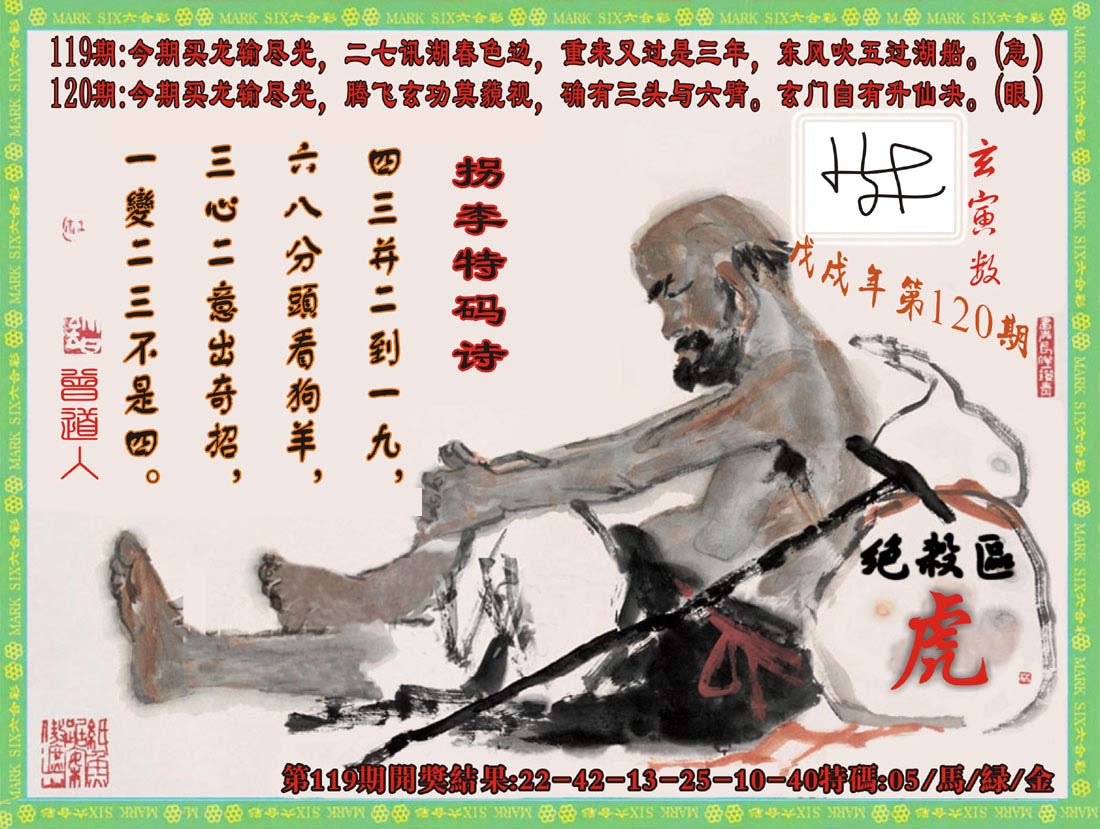 MARK SIX六合彩
119期:今期买龙输尽光，二七讯湖春色边，重来又过是三年，东风吹五过湖船。(急)
120期:今期买龙输尽光，腾飞玄功莫藐视，确有三头与六臂。玄门自有升仙决。(眼)
玄寅数
戊戌年第120期
拐李特码诗
四三并二到一九，
六八分頭看狗羊，
三心二意出奇招，
一變二三不是四。
曾道人
绝殺區
虎
第119期開獎結果:22-42-13-25-10-40特碼:05/馬/緑/金